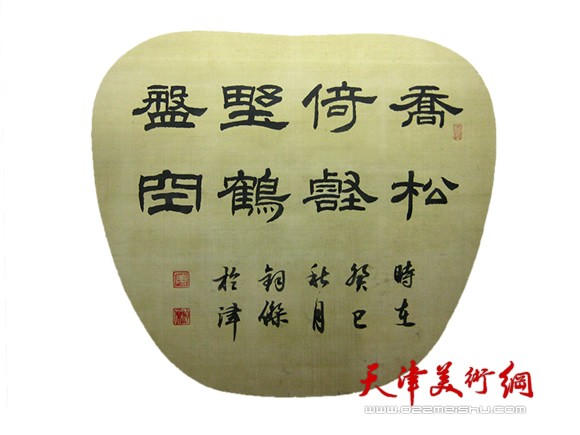 喬松
倚壑
野鶴
盤空
時在
癸巳
秋月
鈞傑
於津
天津美術網
www.022meishu.com